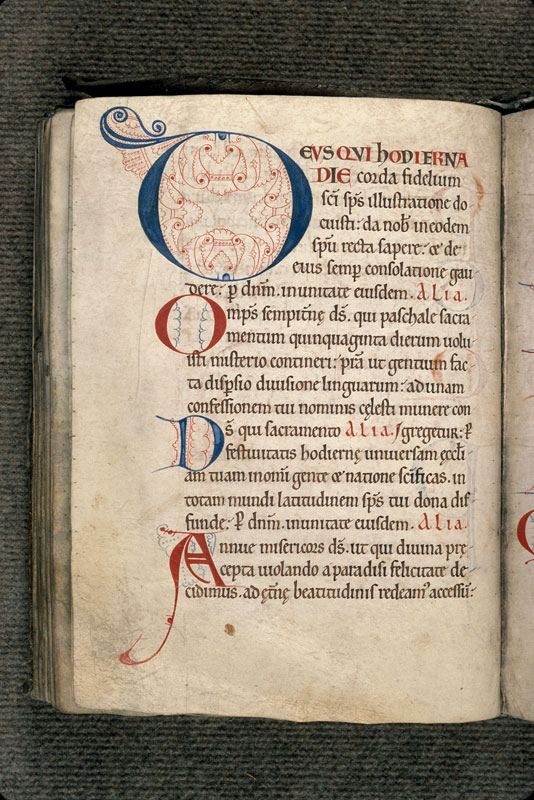 DEVS QVI hODIERNA
DIE corda fidelium
sc̄i sp̄s illustratione do
cuisti: da nob̄ in eodem
sp̄u recta sapere: & de
eius semp̄ consolatione gau
dere: p̄ dn̄m. in unitate eiusdem. Alia.
Omp̄s sempitn̄ę ds̄. qui paschale sacra
mentum quinquaginta dierum uolu
isti misterio contineri: p̄sta ut gentium fac
ta disp̄sio diuisione linguarum: ad unam
confessionem tui nominis cęlesti munere con
Ds̄ qui sacramento Alia. /gregetur: p̄
festiuitatis hodiernę uniuersam ęccl̄i
am tuam in om̄i gente & natione sc̄ificas. in
totam mundi latitudinem sp̄s tui dona dif
funde: P̄ dn̄m. in unitate eiusdem. Alia.
Annue misericors ds̄. ut qui diuina prę
cepta uiolando a paradisi felicitate de
cidimus. ad ęt̄nę beatitudinis redeam᾽ accessū: